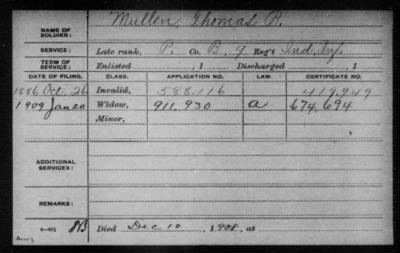 NAME OF SOLDIER: Mullen, Thomas P.
SERVICE: Late rank, P. Co. B, 9 Reg't Ind. Inf.
TERM OF SERVICE: Enlisted , 1 Discharged , 1
DATE OF FILING. CLASS. APPLICATION NO. LAW. CERTIFICATE NO.
1886 Oct. 26 Invalid, 588.116 419.949
1909 Jan 20 Widow, 911.930 a 674.694
Minor,
ADDITIONAL SERVICES:
REMARKS:
Died Dec 10, 1908, at